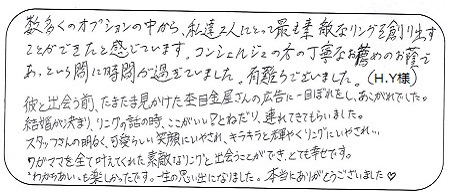 数多くのオプションの中から、私達2人にとって最も素敵なリングを創り出す
ことができたと感じています。コンシェルジュの方の丁寧なお薦めのお蔭で
あっという間に時間が過ぎていました。有難うございました。(H.Y様)
彼と出会う前、たまたま見かけた杢目金屋さんの広告に一目ぼれをし、あこがれでした。
結婚が決まり、リングの話の時、ここがいい♡とねだり、連れてきてもらいました。
スタッフさんの明るく、可愛らしい笑顔にいやされ、キラキラと輝やくリングにいやされ…
ワガママを全て叶えてくれた素敵なリングと出会うことができ、とても幸せです。
"わかちあい"も楽しかったです。一生の思い出になりました。本当にありがとうございました♡